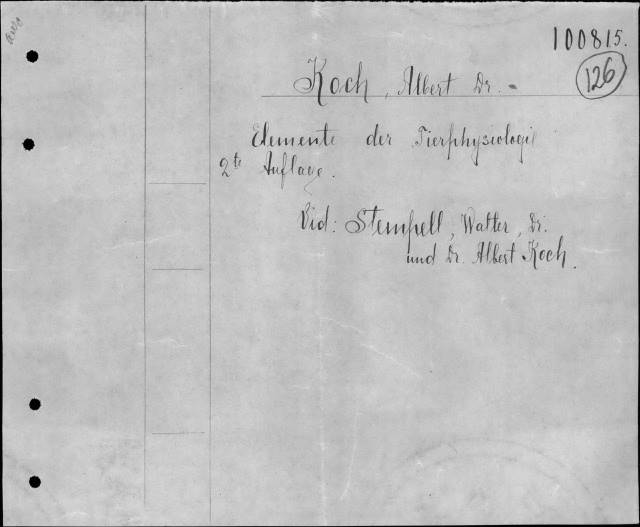 100815.
126
Koch, Albert Dr. -
Elemente der Tierphysiologie
2te Auflage.
Vid: Stempell, Walter, Dr.
und Dr. Albert Koch.